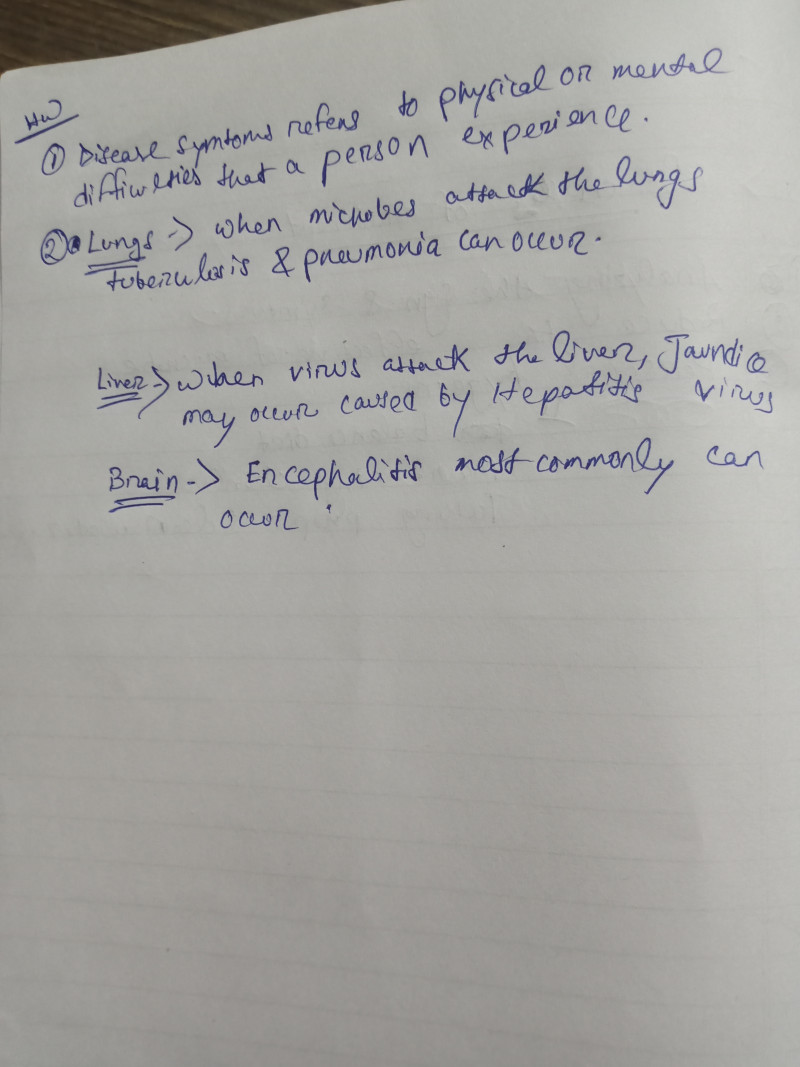 HW
① Disease symtoms refers to physical or mental
difficulties that a person experience.
② Lungs -> when microbes attack the lungs
tuberculosis & pneumonia can occur.
Liver -> when virus attack the liver, Jaundice
may occur caused by Hepatitis virus
Brain -> Encephalitis most commonly can
occur.